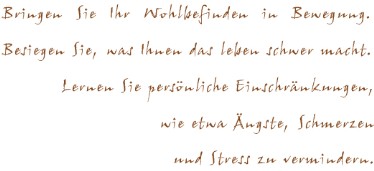 Bringen Sie Ihr Wohlbefinden in Bewegung.
Besiegen Sie, was Ihnen das leben schwer macht.
Lernen Sie persönliche Einschränkungen,
wie etwa Ängste, Schmerzen
und Stress zu vermindern.